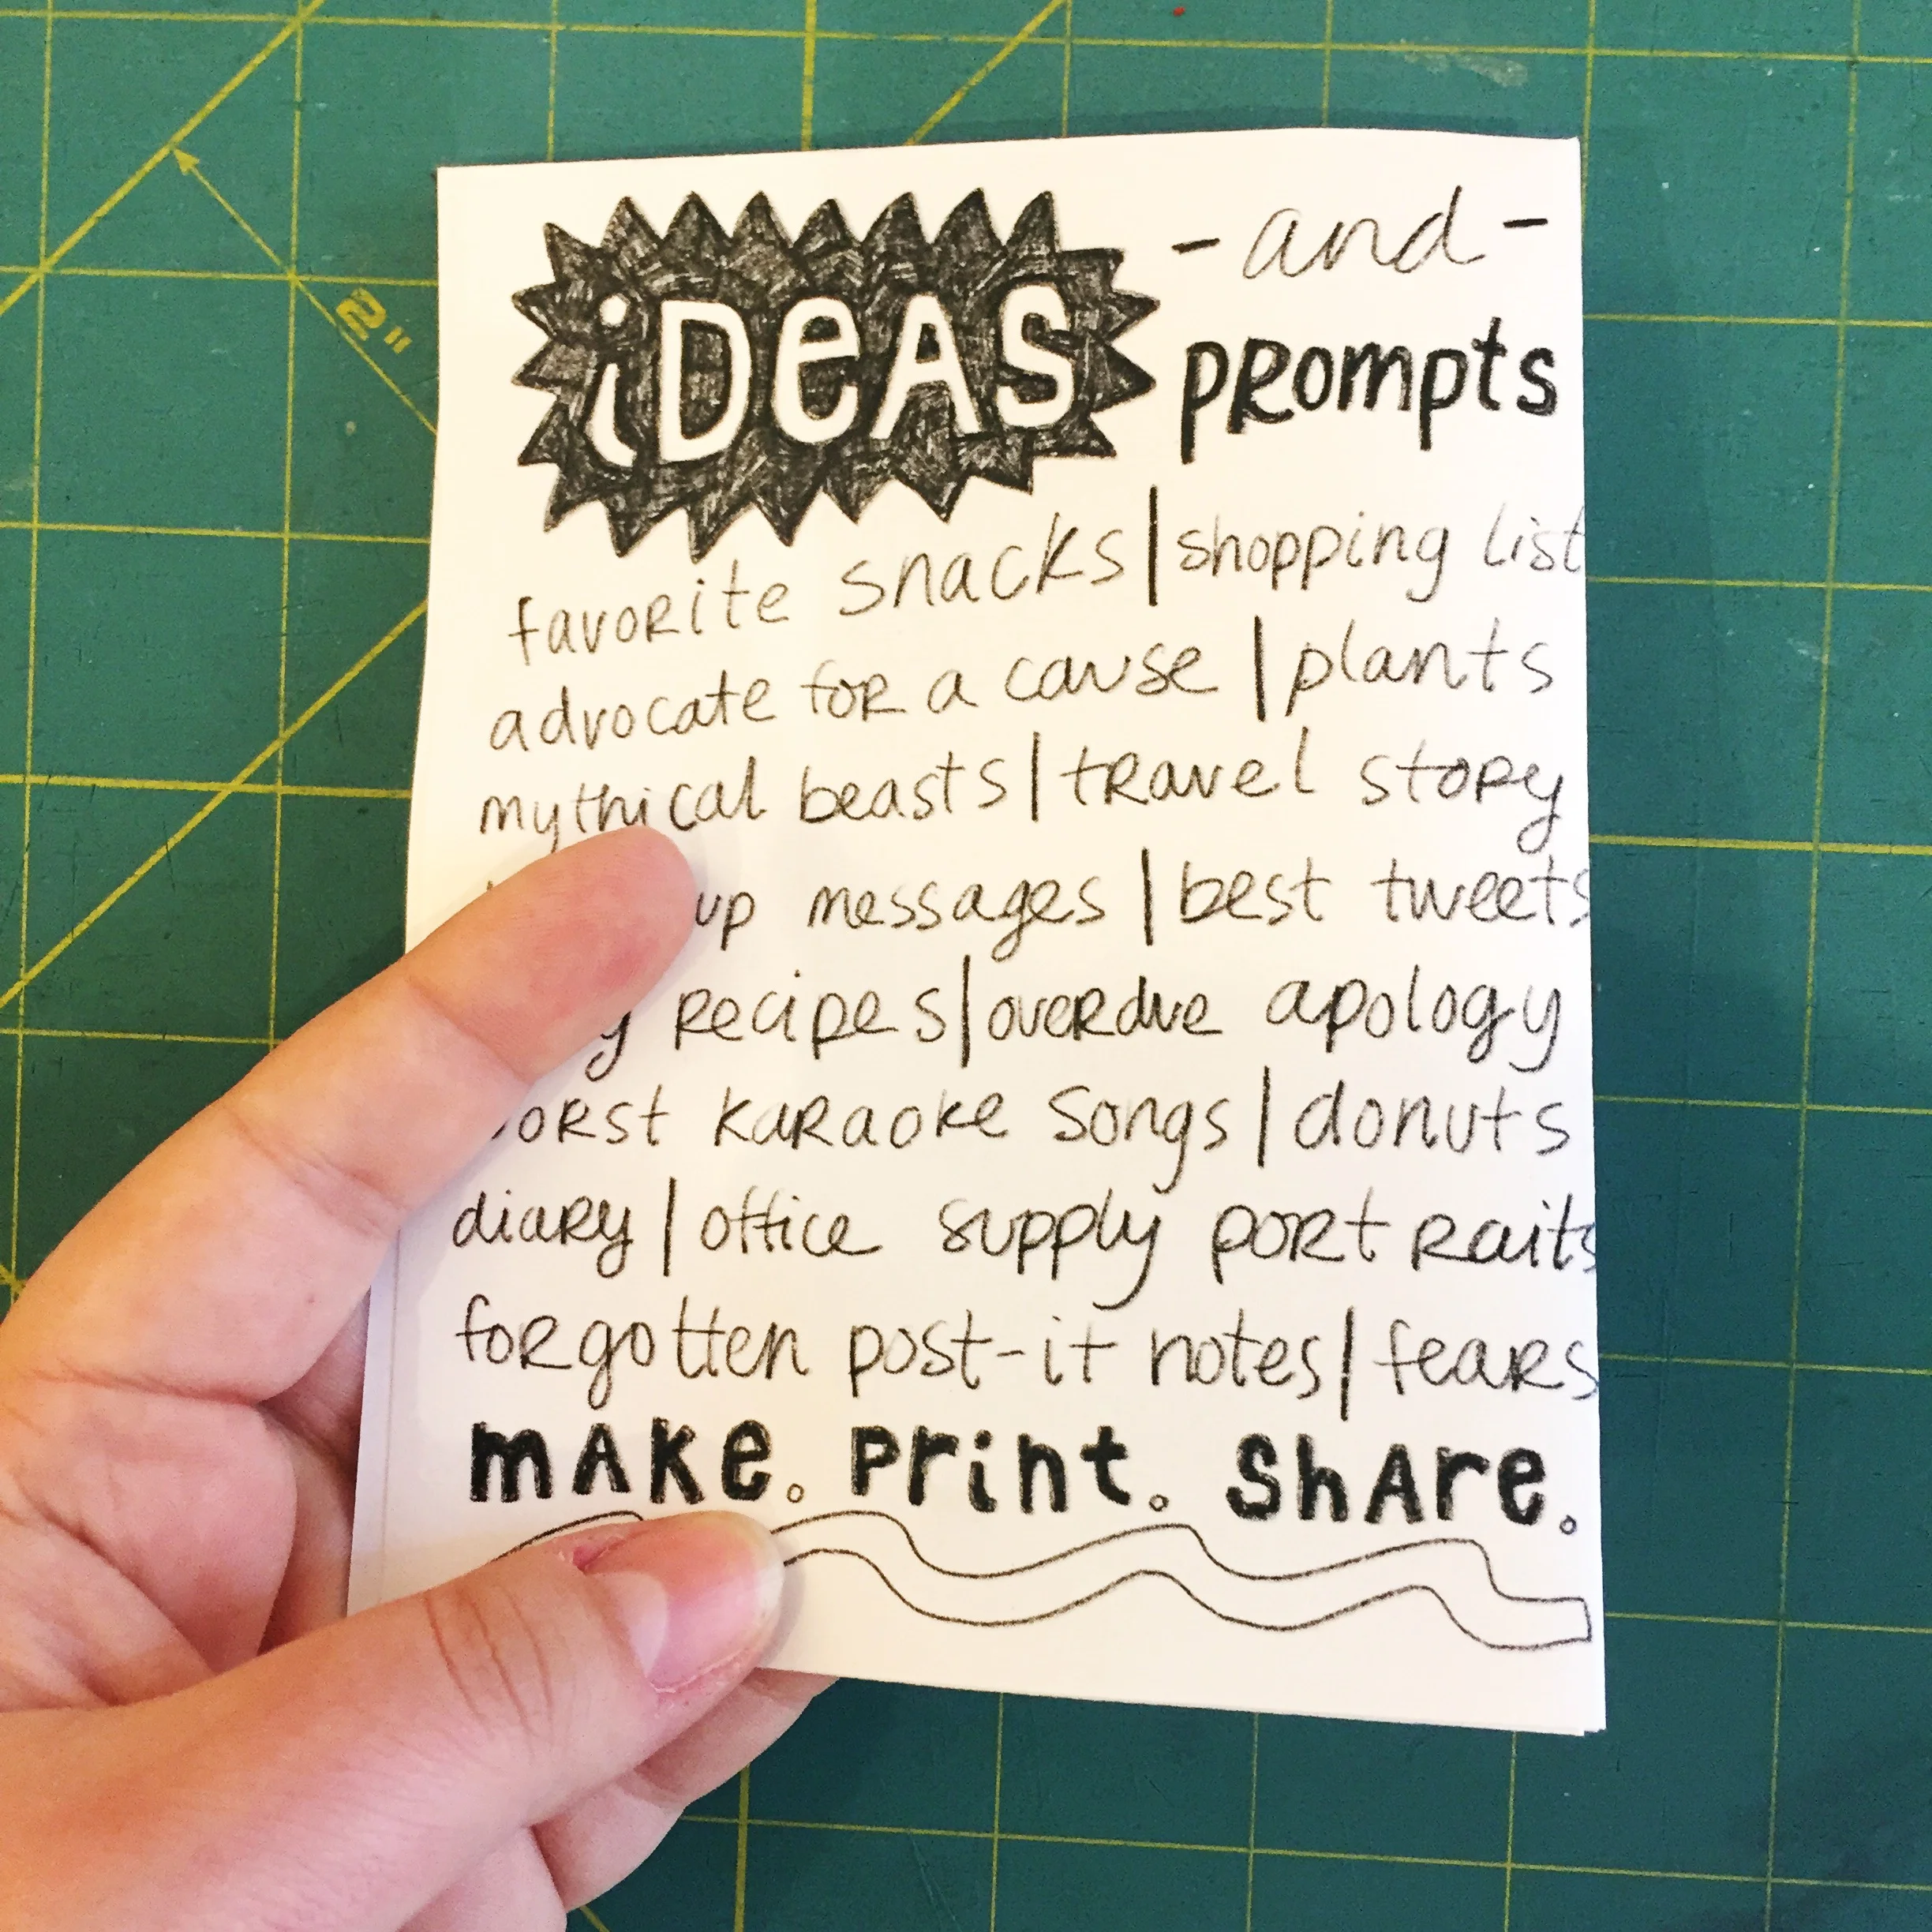 iDeAS -and-
PRompts
favoRite snacks|shopping list
advocate foR a cause|plants
mythical beasts|tRavel stoRy
up messages|best tweets
Recipes|oveRdue apology
karaoke songs|donuts
diaRy|office supply poRtRaits
foRgotten post-it notes|feaRs
mAKe. Print. ShAre.
2"